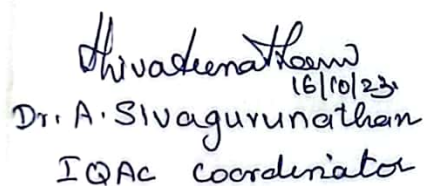 16/10/23.
Dr. A. Sivagurunathan
IQAC coordinator